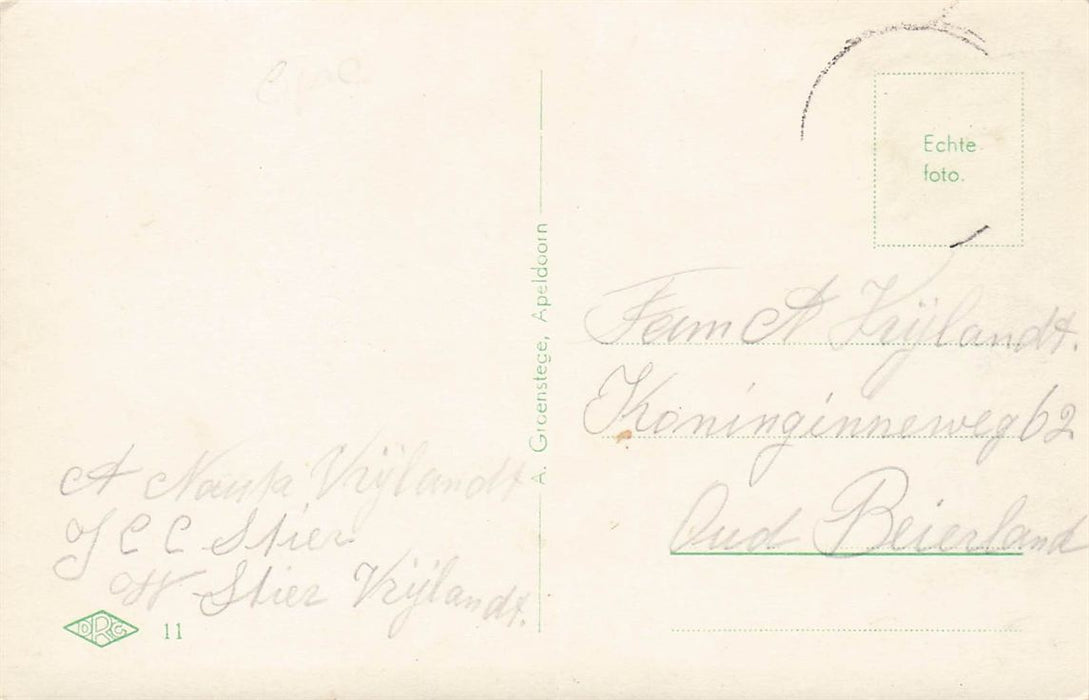 A Nauta Vrijlandt
J C C Stier
W Stier Vrijlandt.
11
A. Groenstege, Apeldoorn
Echte
foto.
Fam A Vrijlandt.
Koninginneweg 62
Oud Beierland